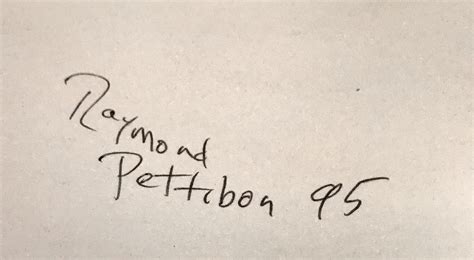 Raymond
Pettibon 95